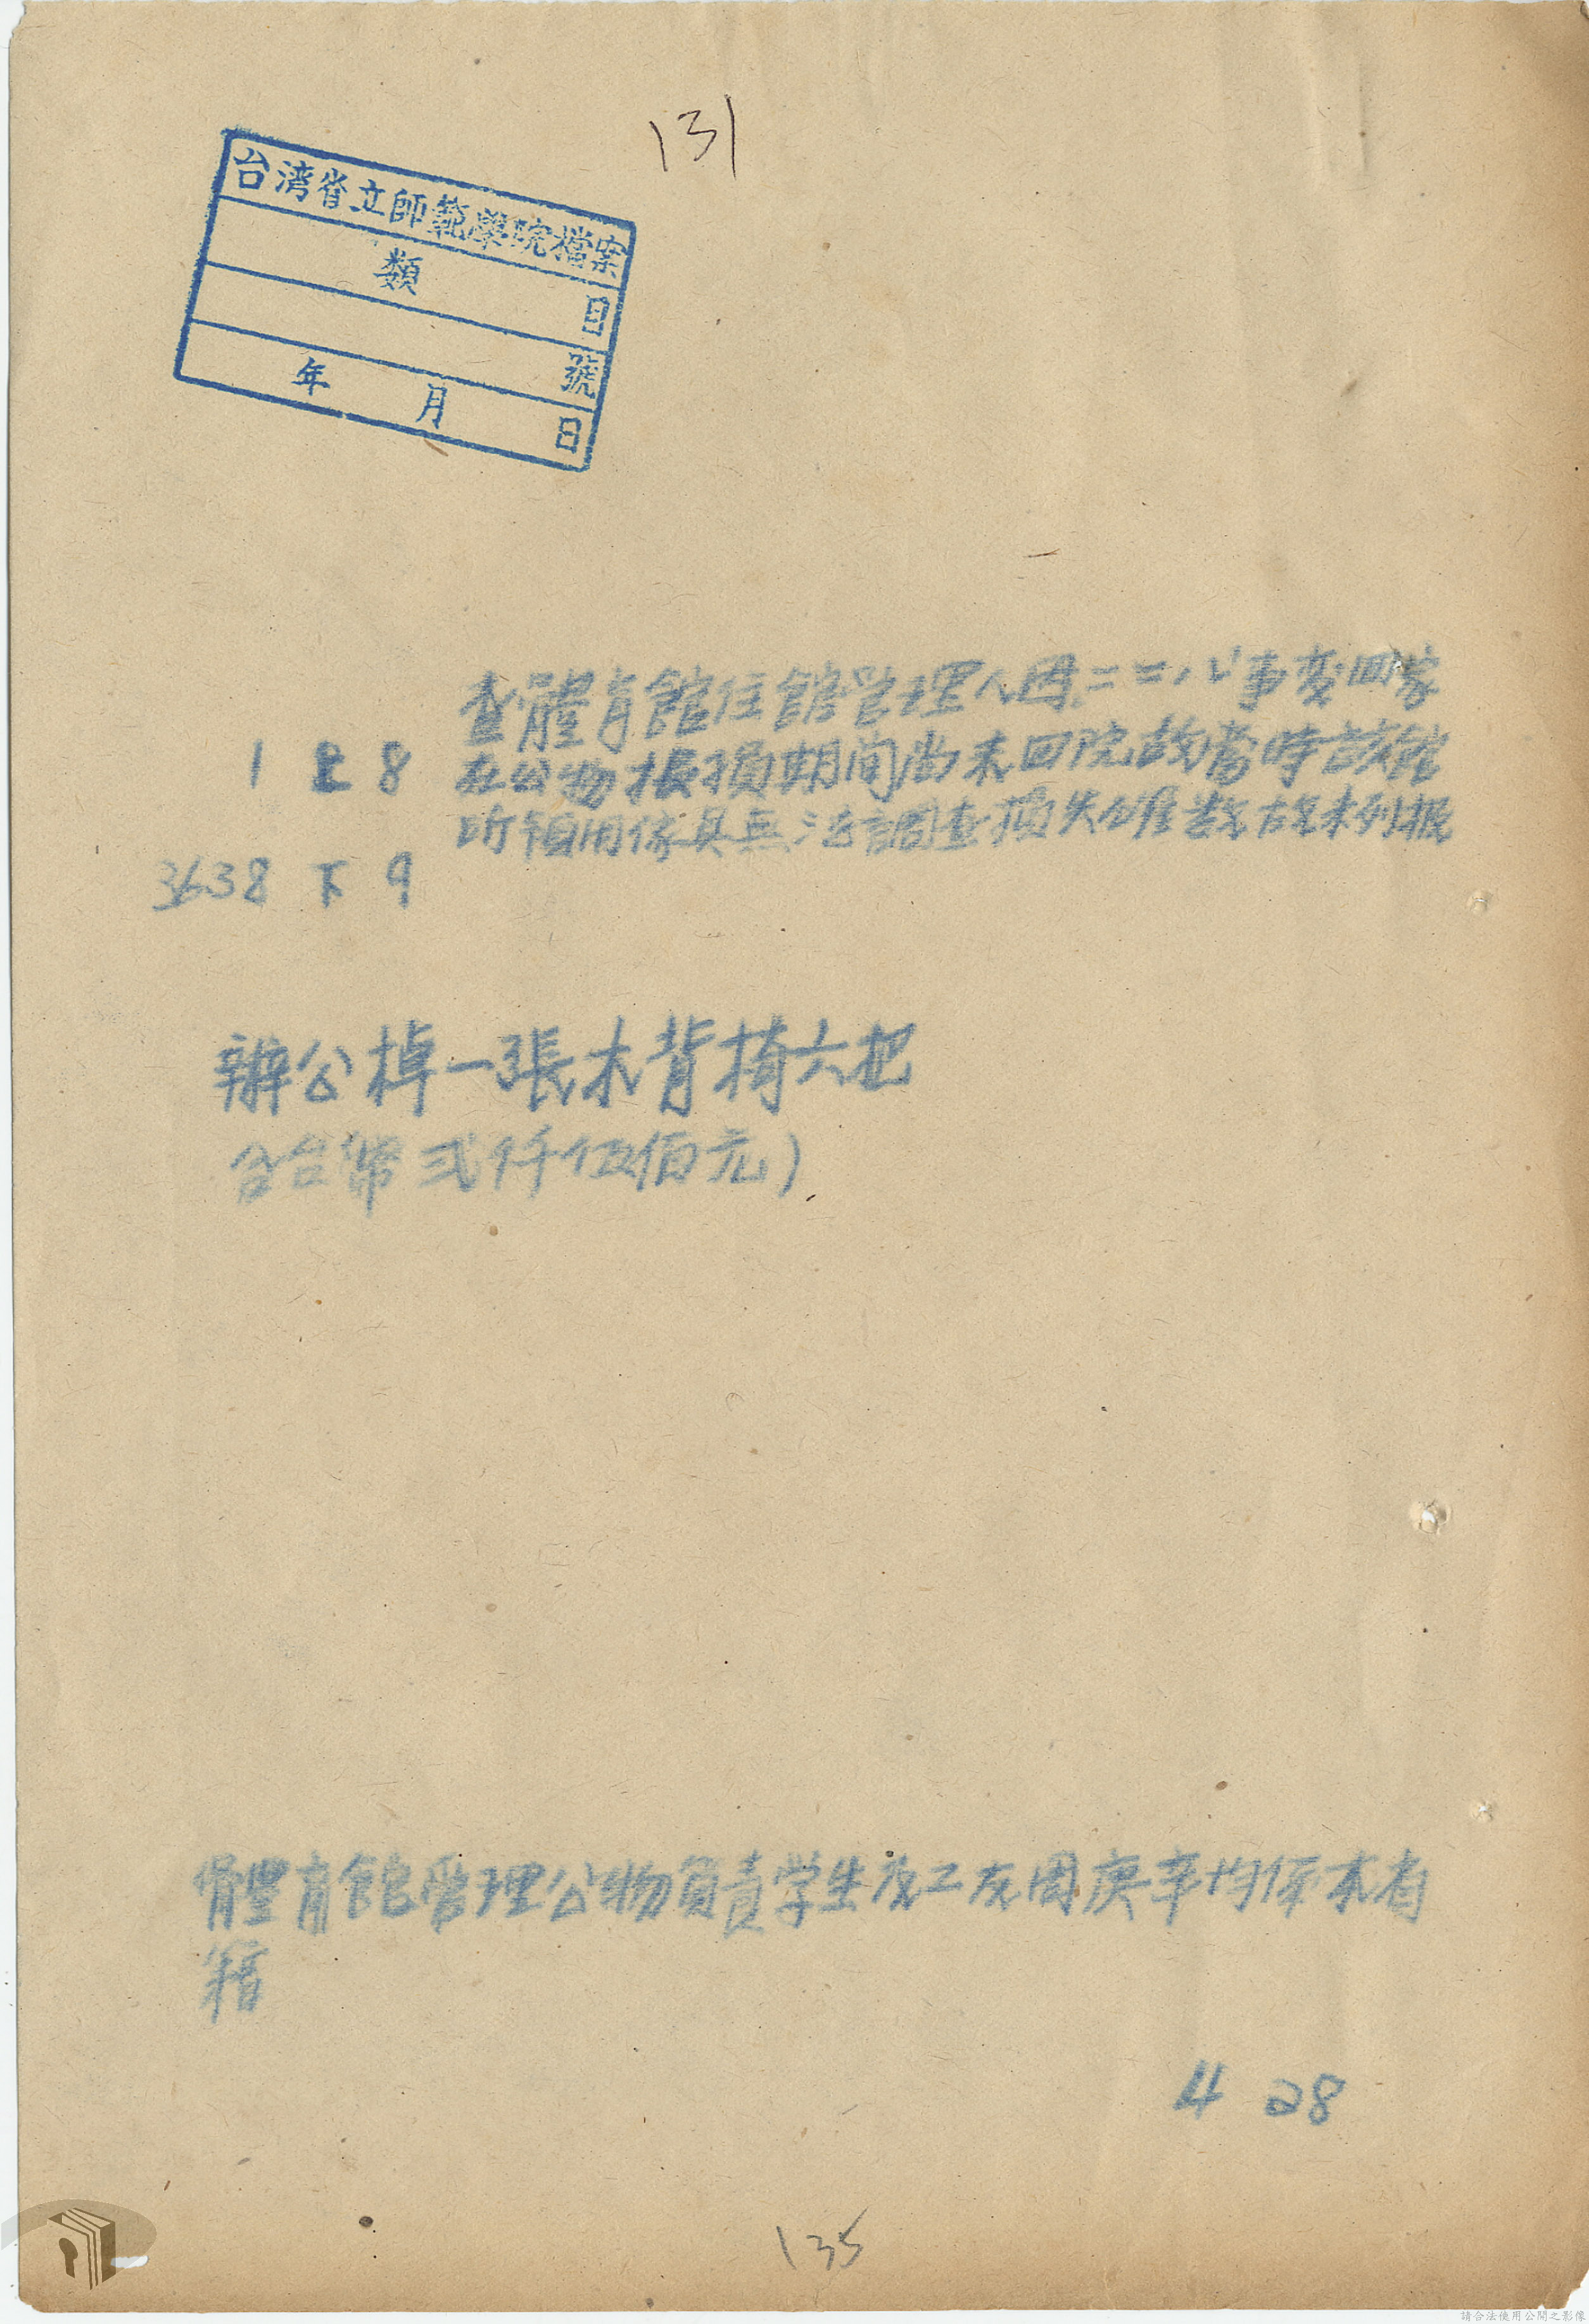 131
台湾省立師範學院檔案
類 目
號
年 月 日
查體育館住館管理人因二二八事変回家
1 上 8 在公物报損期间尚未回院故當時該館
所領用傢具無法調查損失准数故未列报
3638 下 9
辦公棹一張木背椅六把
合台幣弍仟伍佰元)
體育館管理公物負責学生及工友周庚辛均係本省
籍
4 28
135
請合法使用公開之影像